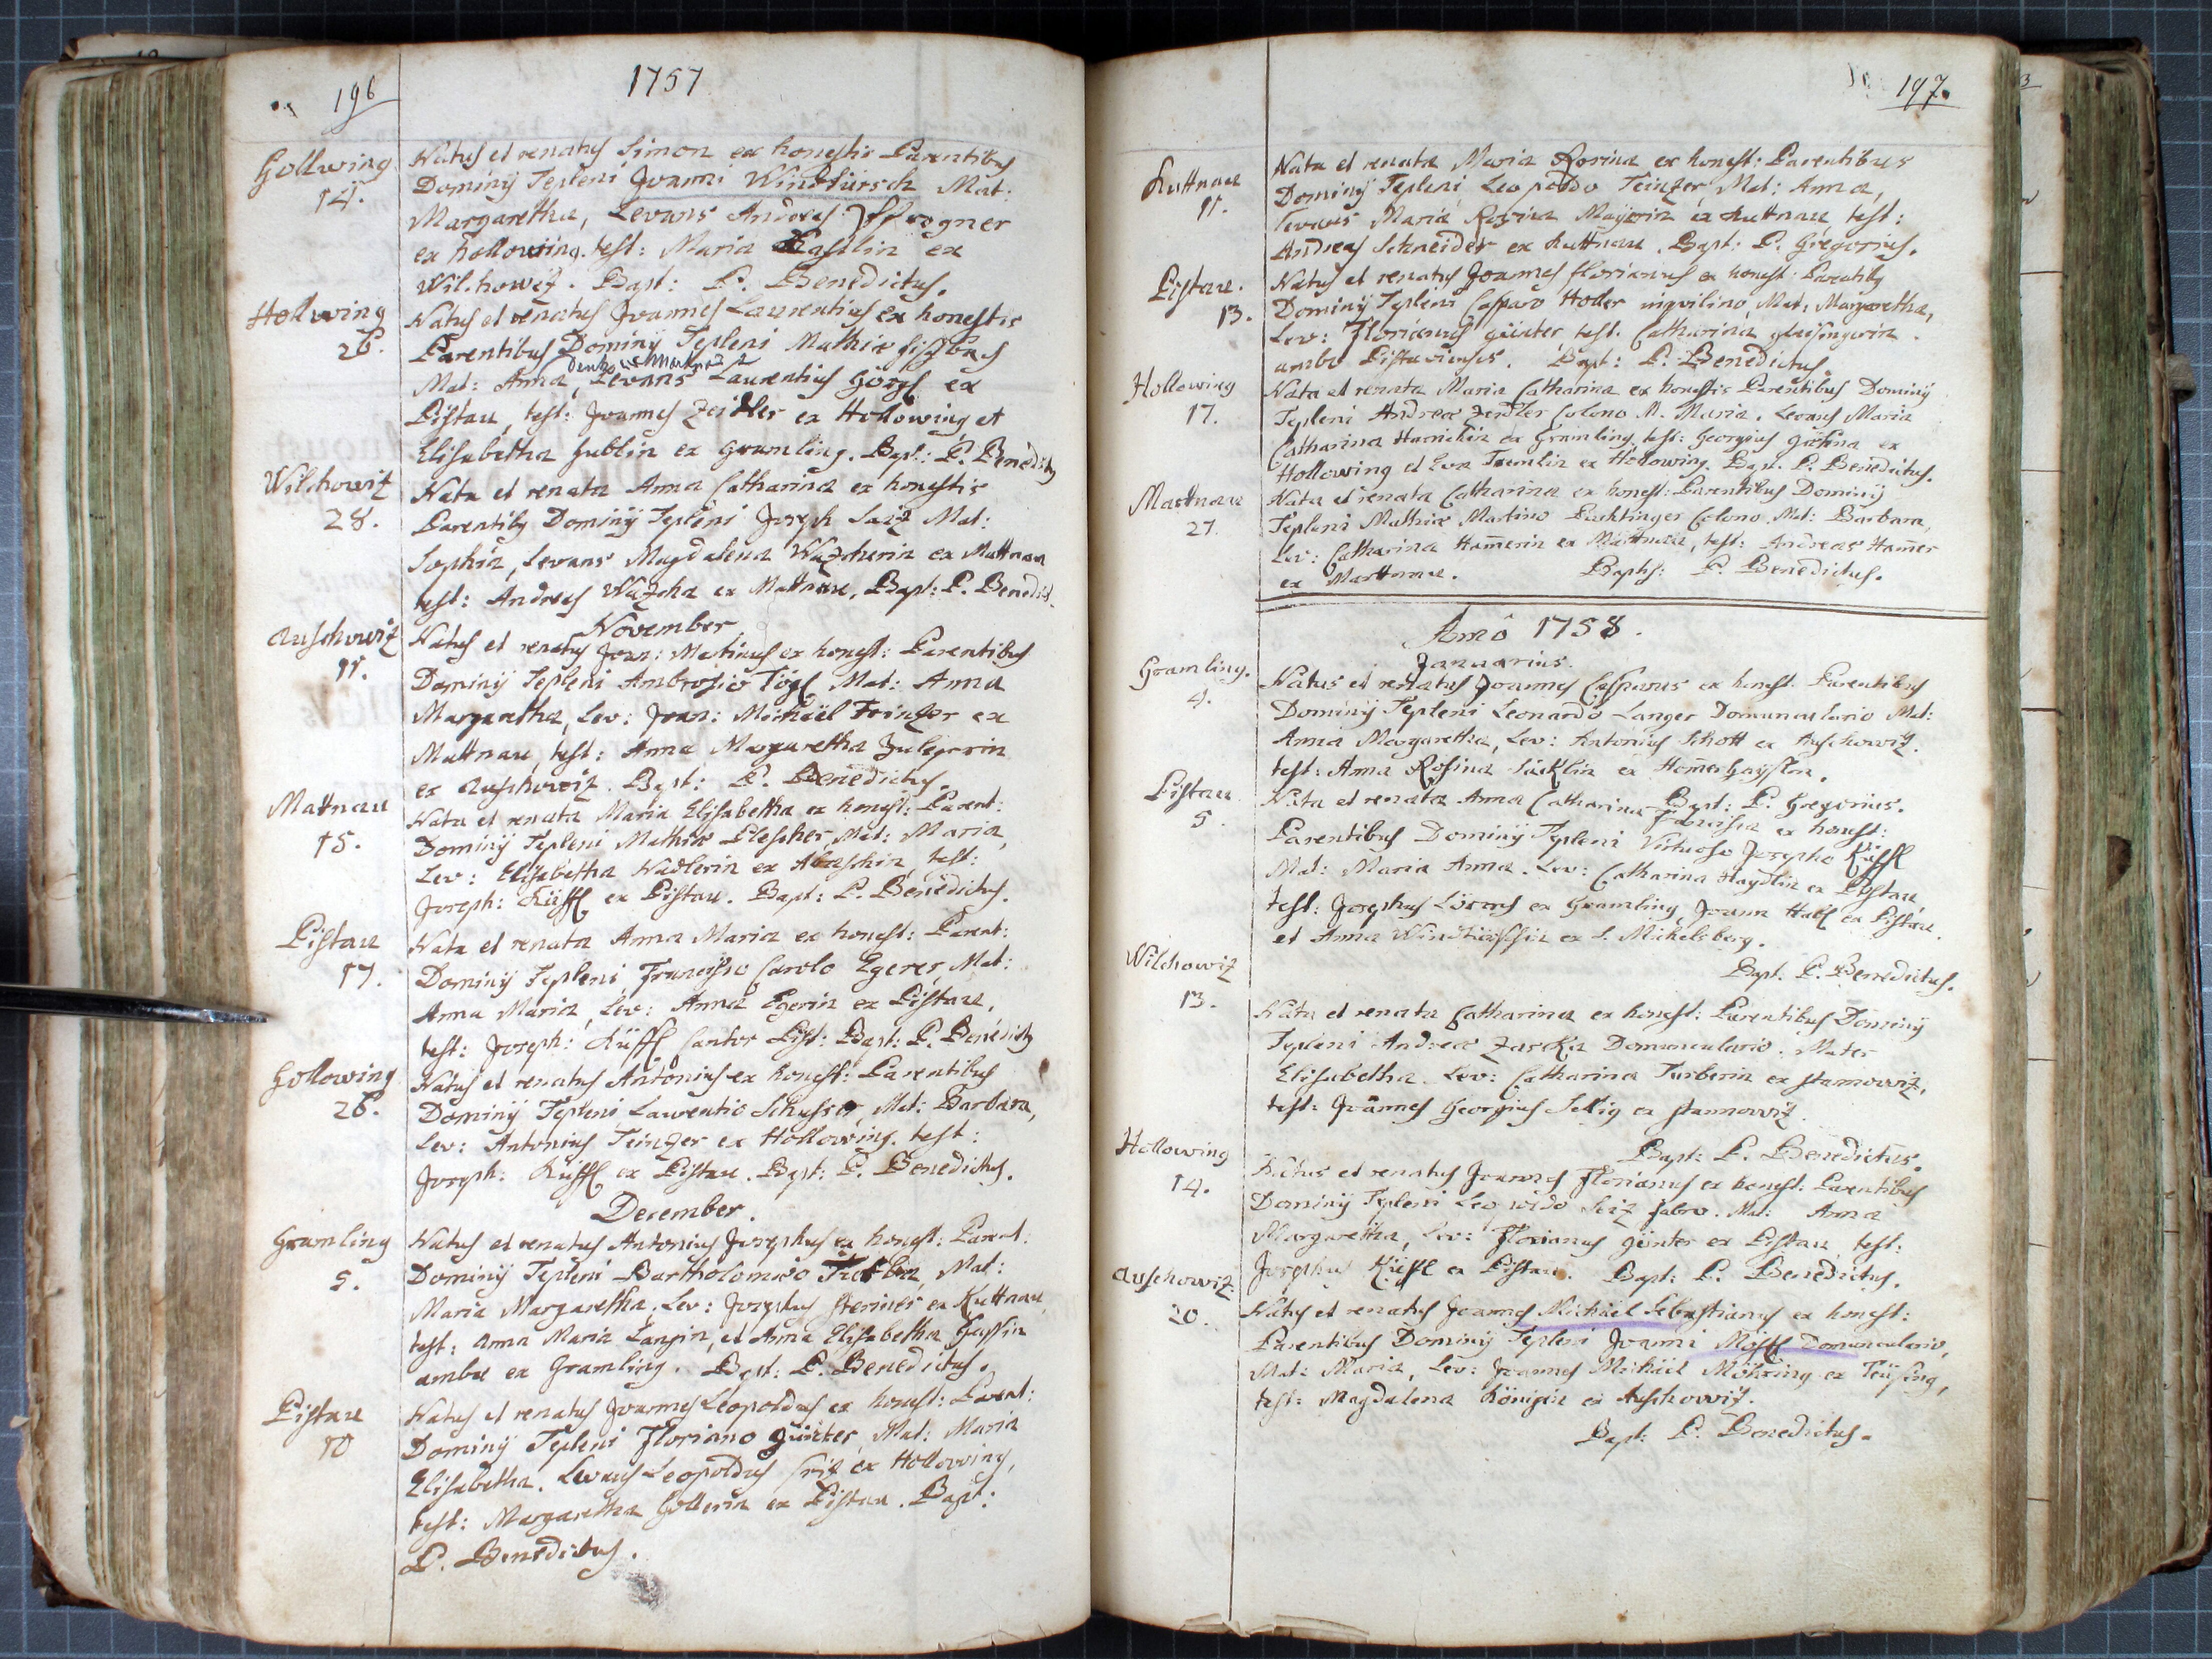 196
1757
Hollwing
14.
Natus et renatus Simon ex honestis Parentibus
Dominÿ Tepleni Joanni Windtürsch Mat:
Margaretha, Levans Andreas
ex Hollowing. test: Maria ex
Wilchowiz. Bapt: P. Benedictus.
Hollwing
26.
Natus et renatus Joannes Laurentius ex honestis
Parentibus Dominÿ Tepleni Mathia
Mat: Anna, Levans Laurentius Görgl ex
Pistau, test: Joannes Zeidler ex Hollowing et
Elisabetha Hublin ex Gramling. Bapt: P. Benedictus
Wilchowiz
28.
Nata et renata Anna Catharina ex honestis
Parentibus Dominÿ Tepleni Joseph Saiz Mat:
Sophia, Levans Magdalena Wazcherin ex Mattnau
test: Andreas Wazcka ex Mattnau, Bapt: P. Benedict.
November
Auschowiz
11.
Natus et renatus Joan: Martinus ex honest: Parentibus
Dominÿ Tepleni Ambrosio Tögl Mat: Anna
Margaretha, Lev: Joan: Michaël Teinzer ex
Mattnau, test: Anna Margaretha
ex Auschowiz. Bapt: P. Benedictus.
Mattnau
15.
Nata et renata Maria Elisabetha ex honest: Parent:
Dominÿ Tepleni Mathia Plescher, Mat: Maria,
Lev: Elisabetha Nadlerin ex Abaschin, test:
Joseph: Küffl ex Pistau. Bapt: P. Benedictus.
Pistau
17.
Nata et renata Anna Maria ex honest: Parent:
Dominÿ Tepleni Francisco Carolo Egerer, Mat:
Anna Maria, Lev: Anna Egerin ex Pistau,
test: Joseph: Küffl Cantor Pist: Bapt: P. Benedictus
Hollowing
26.
Natus et renatus Antonius ex honest: Parentibus
Dominÿ Tepleni Laurentio Schusser, Mat: Barbara,
Lev: Antonius Teinzer ex Hollowing. test:
Joseph: Küffl ex Pistau. Bapt: P. Benedictus.
December.
Gramling
5.
Natus et renatus Antonius Josephus ex honest: Parent:
Dominÿ Tepleni Bartholomæo Mat:
Maria Margaretha. Lev: Josephus ex Kuttnau,
test: Anna Maria Langin, et Anna Elisabetha
ambæ ex Gramling. Bapt: P. Benedictus.
Pistau
10
Natus et renatus Joannes Leopoldus ex honest: Parent:
Dominÿ Tepleni Floriano Günter, Mat: Maria
Elisabetha. Levans Leopoldus Seiz ex Hollowing,
test: Margaretha Hollerin ex Pistau. Bapt:
P. Benedictus.
197.
Kuttnau
11.
Nata et renata Maria Rosina ex honest: Parentibus
Dominÿ Tepleni Leopoldo Teinzer, Mat: Anna,
Levans Maria Rosina Mayerin ex Kuttnau test:
Andreas Schneider ex Kuttnau. Bapt: P. Gregorius.
Pistau.
13.
Natus et renatus Joannes Florianus ex honest: Parentibus
Dominÿ Tepleni Casparo Holler inquilino, Mat: Margaretha,
Lev: Florianus Günter test. Catharina
ambo Pistavienses. Bapt: P. Benedictus.
Hollowing
17.
Nata et renata Maria Catharina ex honestis Parentibus Dominÿ
Tepleni Andrea Zeidler Colono M. Maria. Levans Maria
Catharina ex Gramling, test: Georgius ex
Hollowing et Eva ex Hollowing. Bapt. P. Benedictus.
Mattnau
27.
Nata et renata Catharina ex honest: Parentibus Dominÿ
Tepleni Mathia Martino Colono, Mat: Barbara,
Lev: Catharina Ham̄erin ex Mattnau, test: Andreas Ham̄er
ex Mattnau. Baptis: P. Benedictus.
Anno 1758.
Januarius.
Gramling.
4.
Natus et renatus Joannes Casparus ex honest. Parentibus
Dominÿ Tepleni Leonardo Langer Domunculario Mat:
Anna Margaretha, Lev: Antonius Schott ex Auschowiz.
test: Anna Rosina ex
Bapt: P. Gregorius.
Pistau
5.
Nata et renata Anna Catharina Francisca ex honest:
Parentibus Dominÿ Tepleni Virtuoso Josepho Küffl
Mat: Maria Anna. Lev: Catharina Haydlin ex Pistau,
test: Josephus ex Gramling, Joann ex Pistau.
et Anna ex S. Michelsberg.
Bapt. P. Benedictus.
Wilchowiz
13.
Nata et renata Catharina ex honest: Parentibus Dominÿ
Tepleni Andrea Domunculario. Mater
Elisabetha. Lev: Catharina Turberin ex Stannowiz,
test: Joannes Georgius Sellig ex Stannowiz.
Bapt: P. Benedictus.
Hollowing
14.
Natus et renatus Joannes Florianus ex honest: Parentibus
Dominÿ Tepleni Seiz fabro. Mat: Anna
Margaretha, Lev: Florianus Günter ex Pistau, test:
Josephus Küffl ex Pistau. Bapt: P. Benedictus.
Auschowiz
20.
Natus et renatus Joannes Michaël Sebastianus ex honest:
Parentibus Dominÿ Tepleni Joanni Domunculario,
Mat: Maria, Lev: Joannes Michaël Möhring ex Teüsing,
test: Magdalena Königin ex Auschowiz.
Bapt: P. Benedictus.